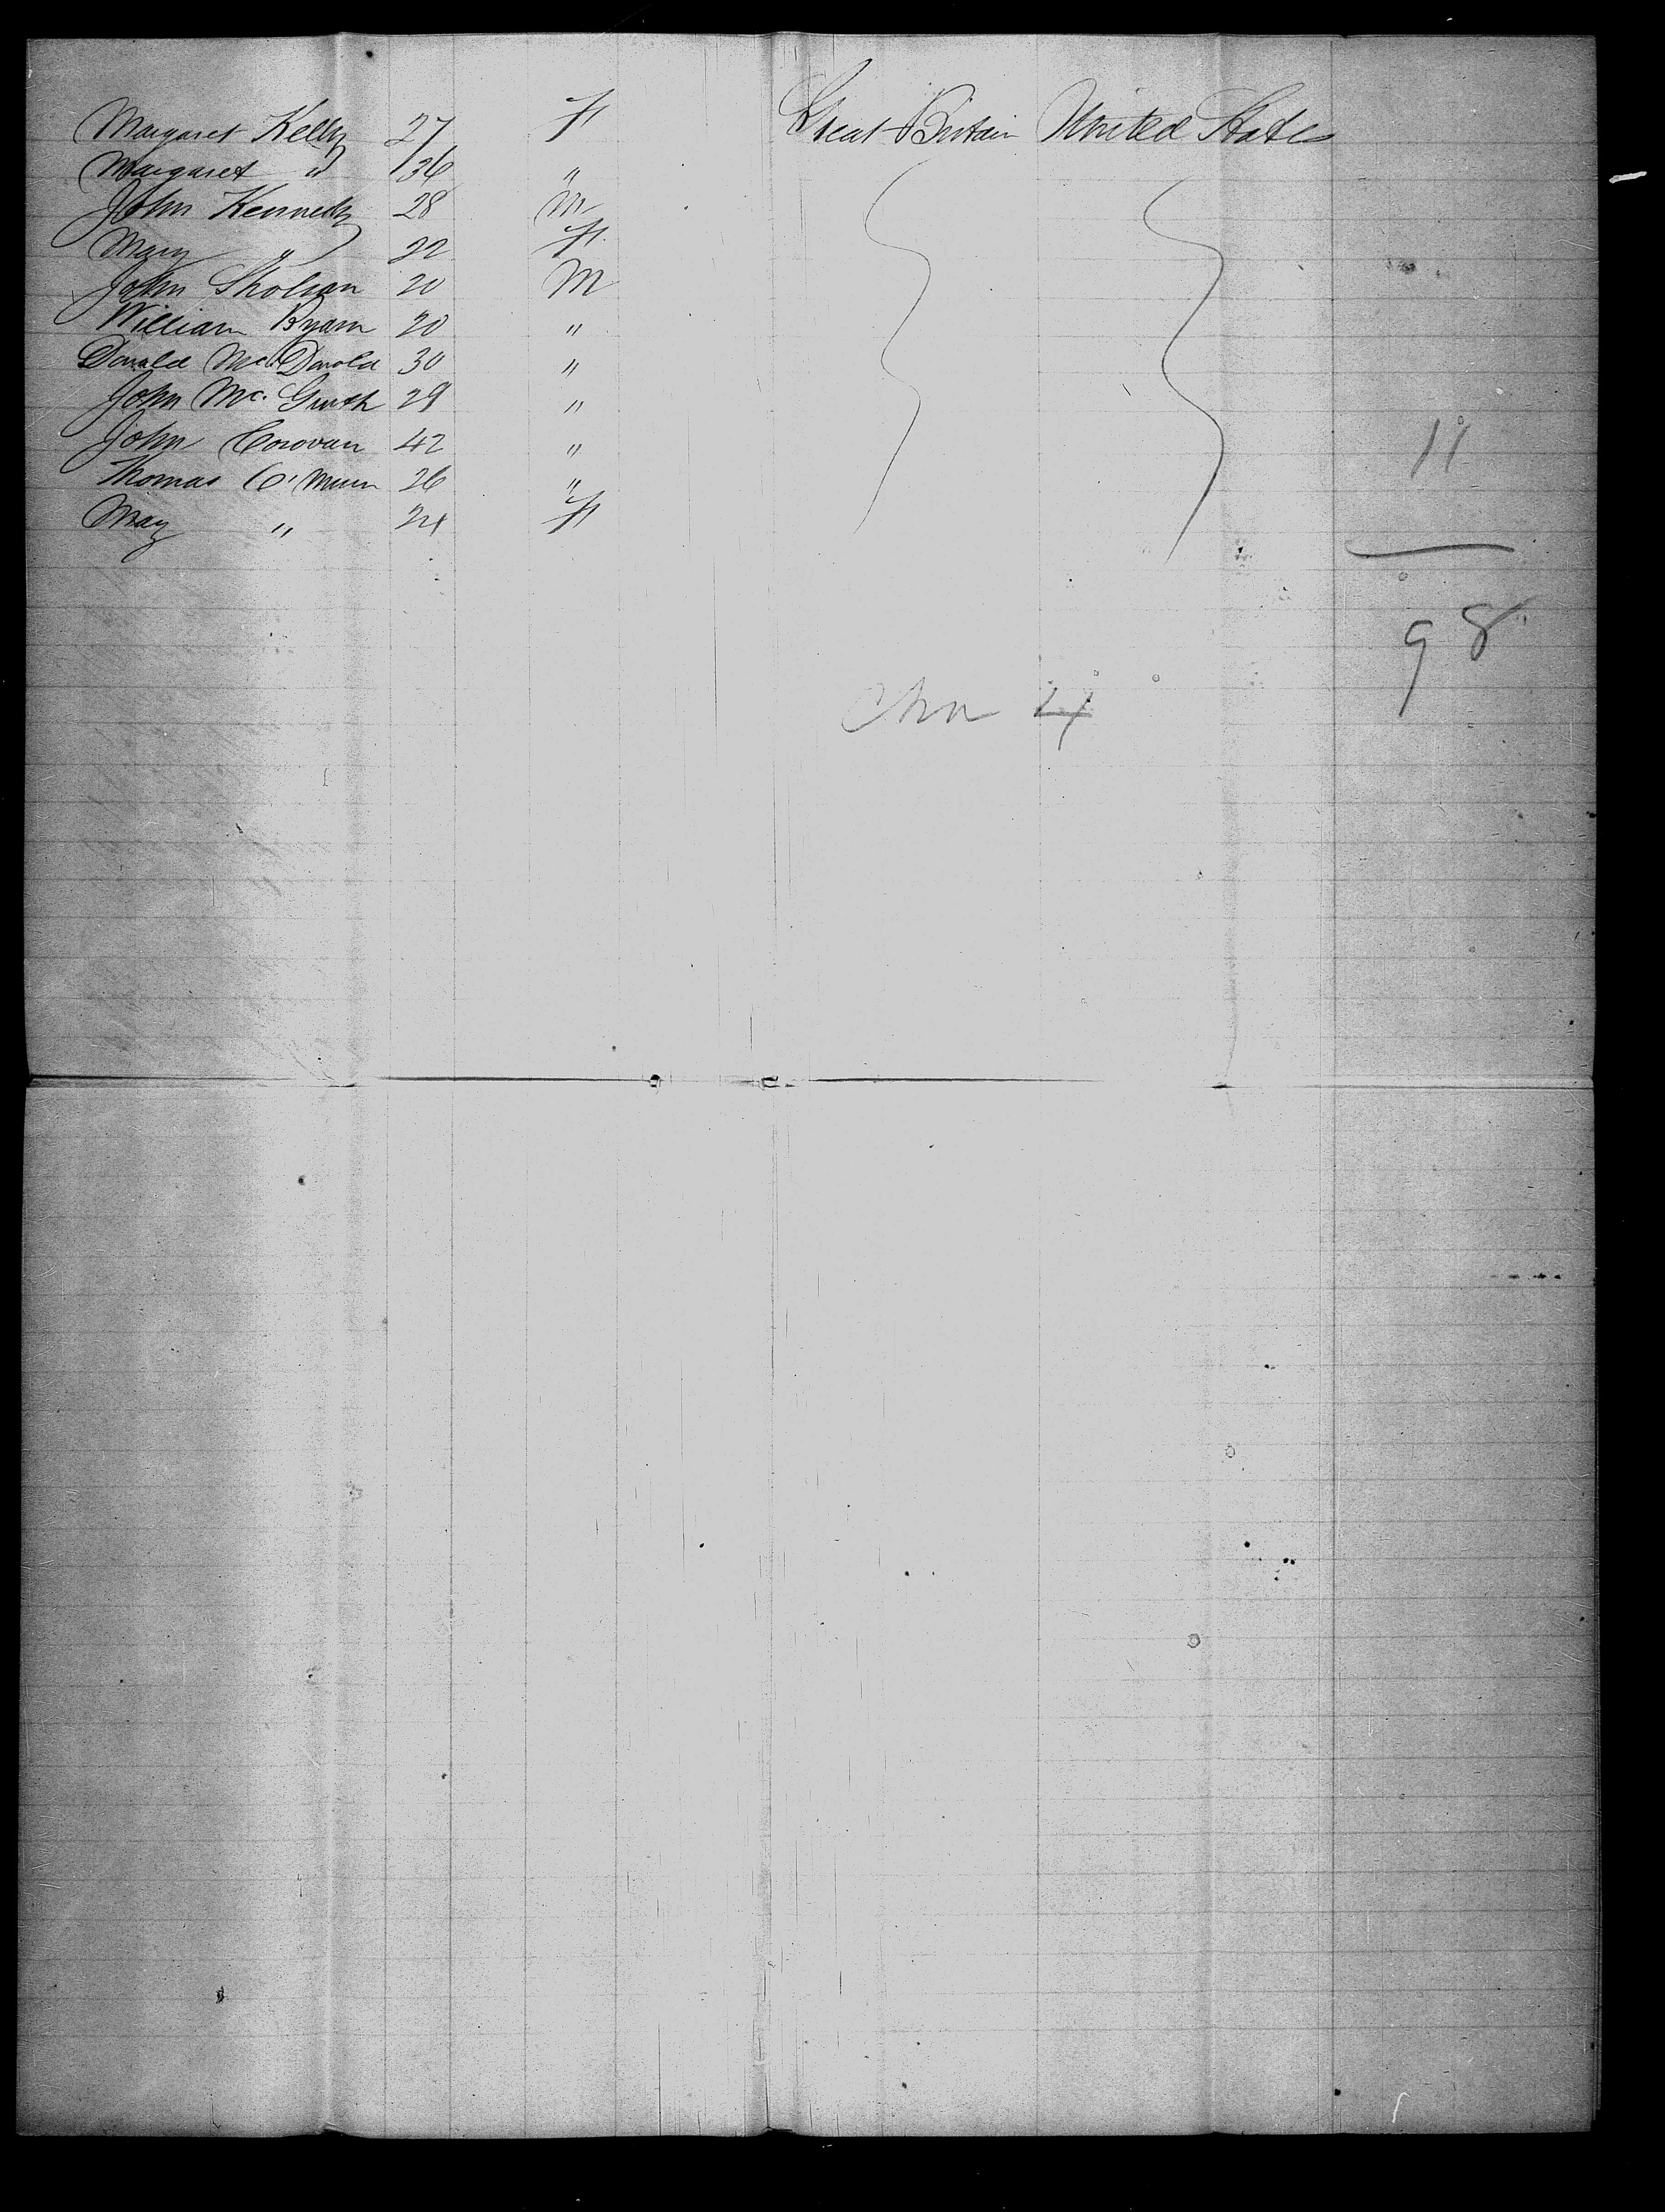 Margaret Kelly 27 F Great Britain United States
Margaret " 36 "
John Kennedy 28 M
Mary " 22 F
John Sholvan 20 M
William Ryam 20 "
Donald McDonold 30 "
John Mc. Gurth 29 "
John Corovan 42 "
Thomas O' 26 "
May " 24 F
11
98
Chn 4